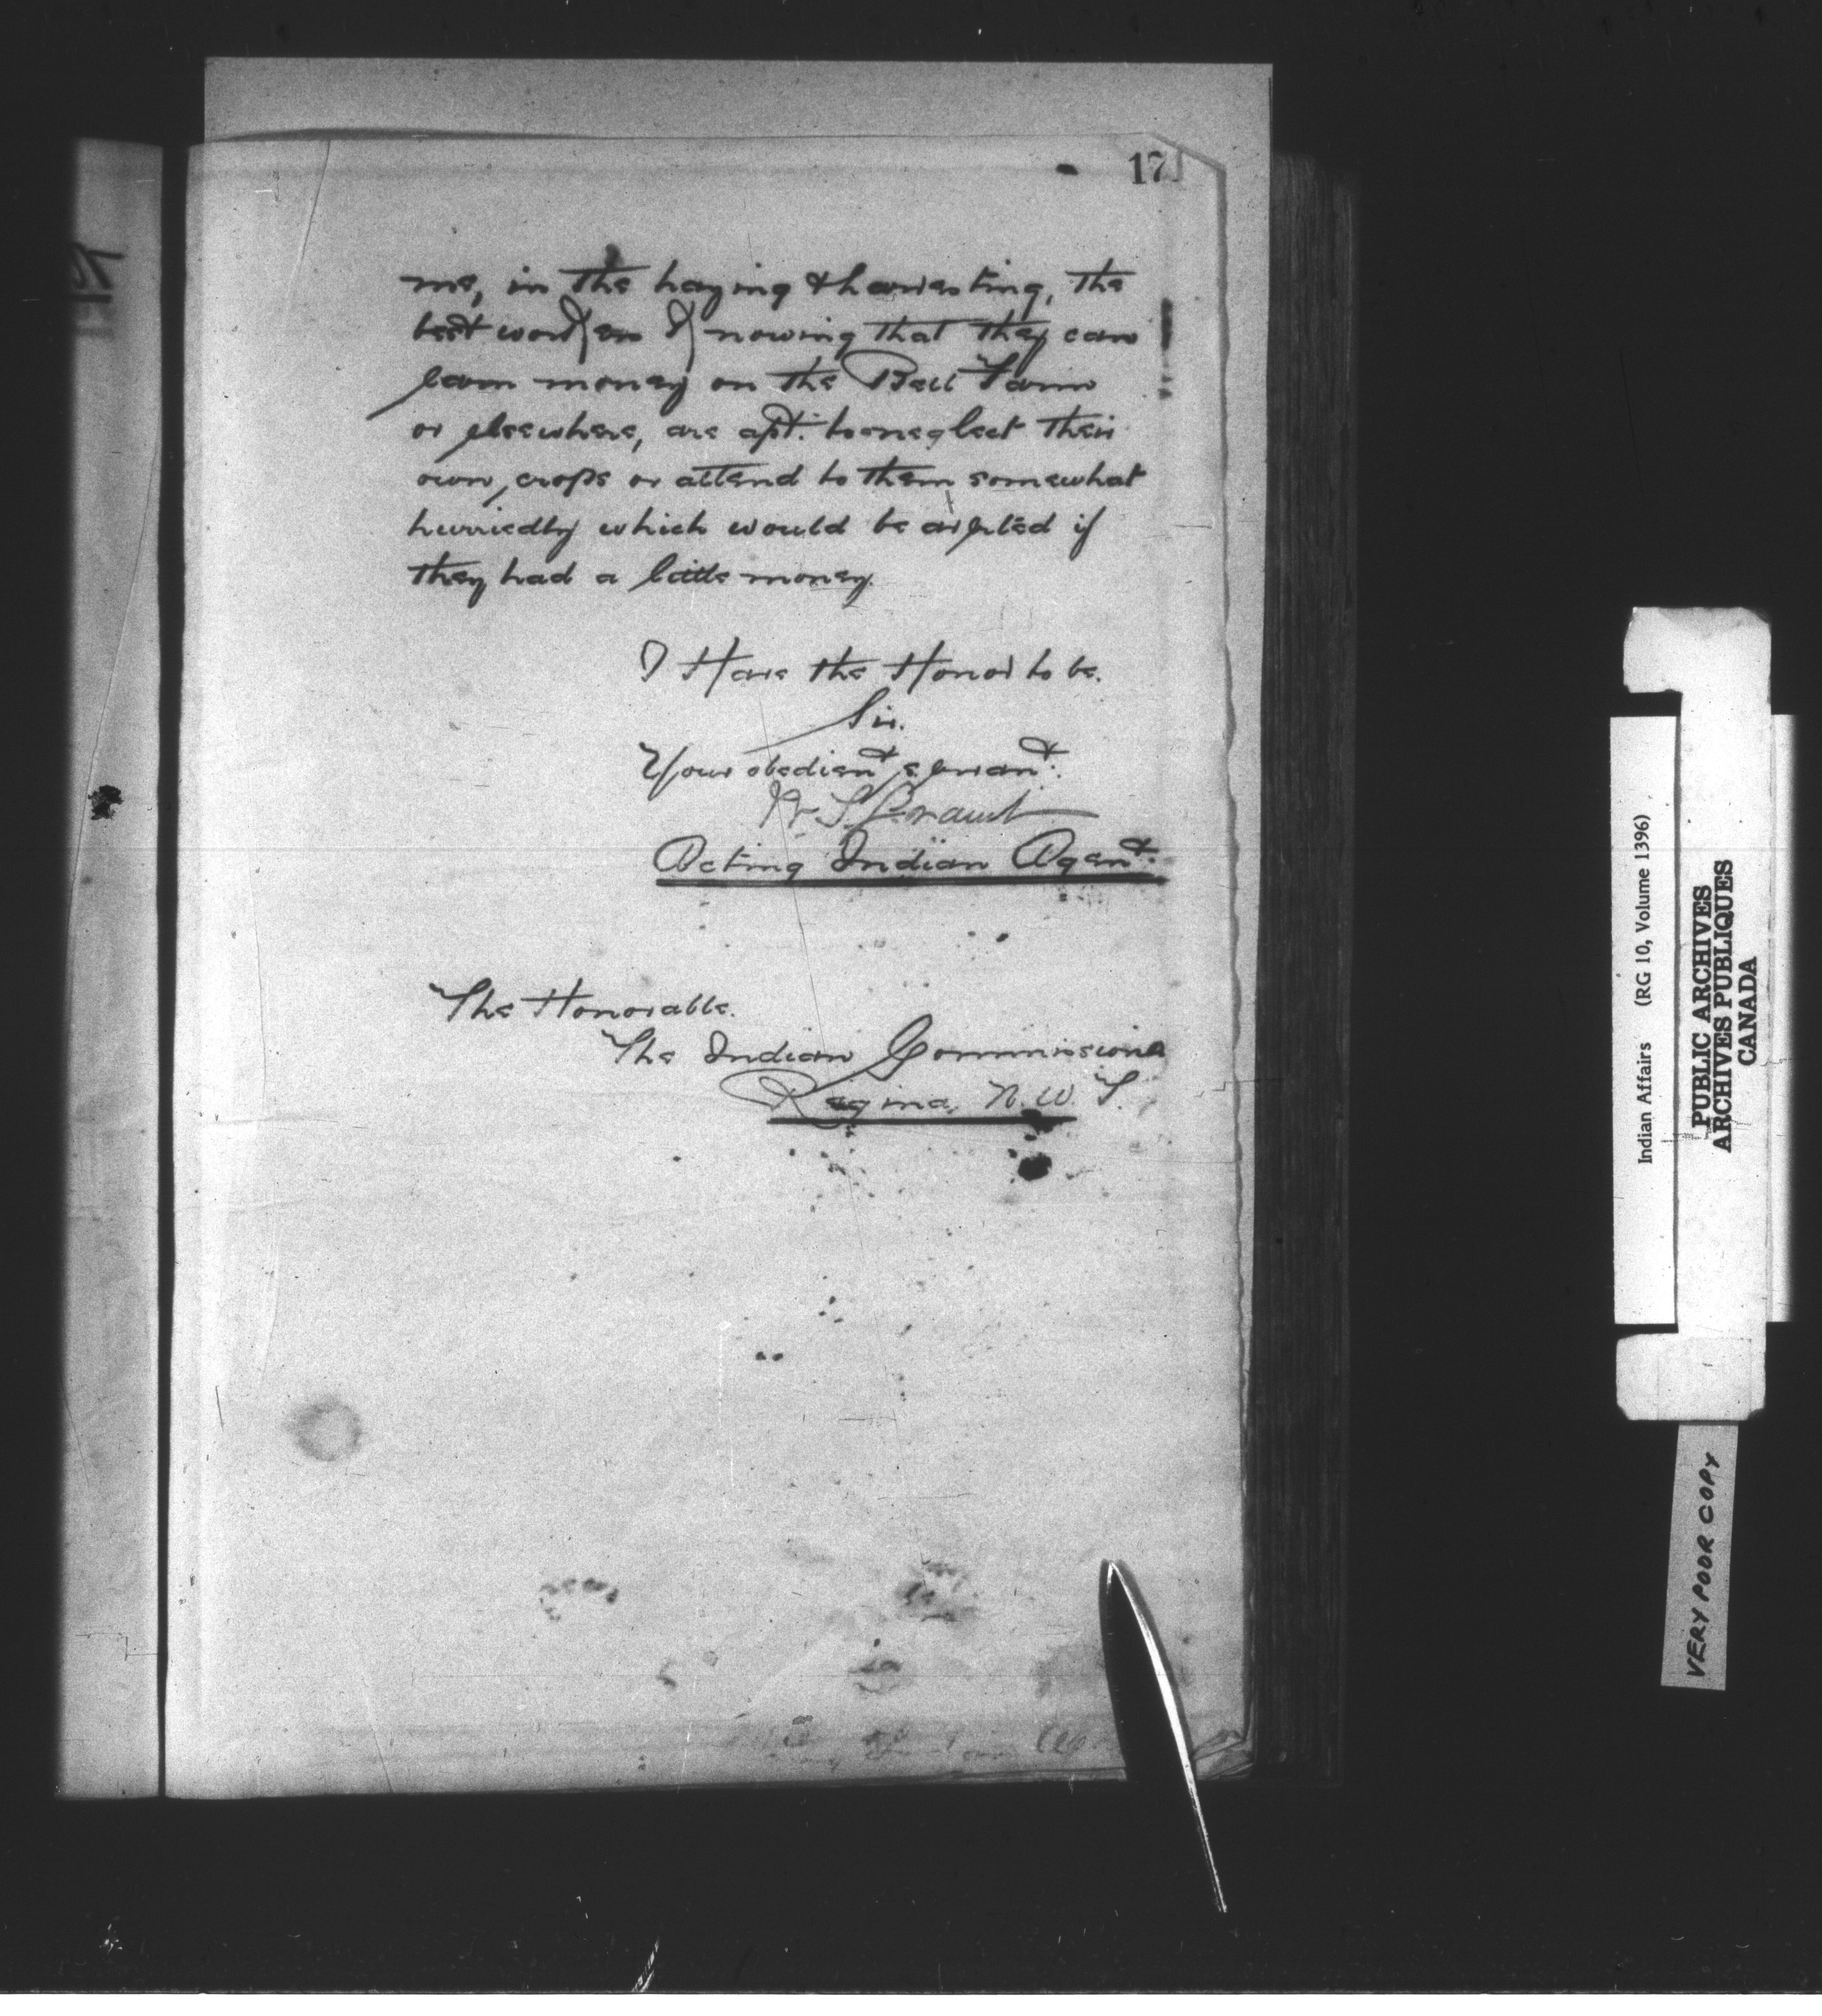 17
me, in the haying & harvesting, the
best workers knowing that they can
earn money on the Bell Farm
or elsewhere, are apt. to neglect their
own, crops or attend to them somewhat
hurriedly which would be averted if
they had a little money.
I Have the Honor to be.
Sir.
Your obedient servant.
W. S. Grant
Acting Indian Agent.
The Honorable.
The Indian Commissioner
Regina, N. W. T.
Indian Affairs (RG 10, Volume 1396)
PUBLIC ARCHIVES
ARCHIVES PUBLIQUES
CANADA
VERY POOR COPY